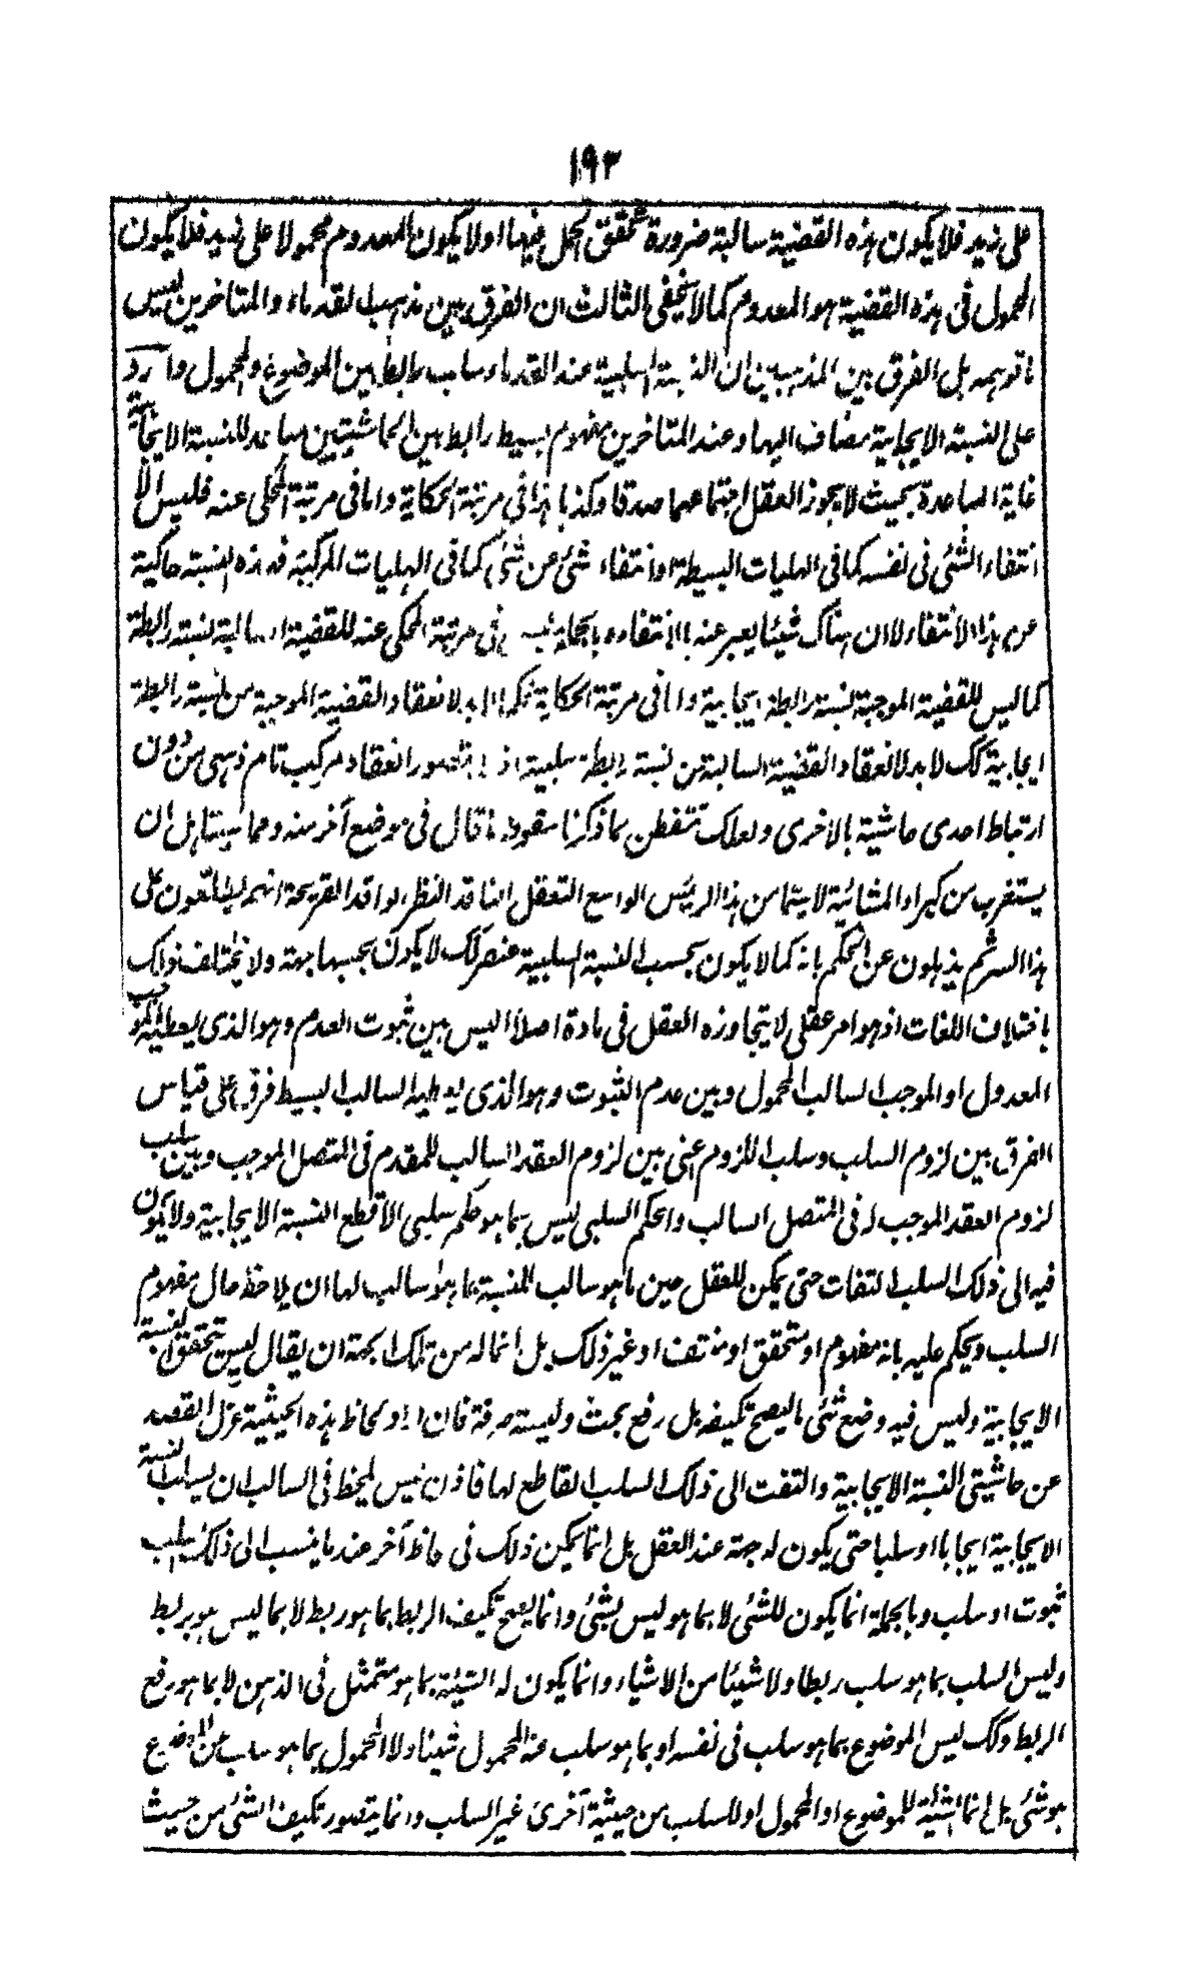 ١٩٣
على زيد فلا يكون هذه القضية سالبة ضرورة تحقق الحمل فيها اولا يكون المعدوم محمولا على زيد فلا يكون
المحمول فى هذه القضية هو المعدوم كما لا يخفى الثالث ان الفرق بين مذهب القدماء والمتاخرين ليس
ما توهمه بل الفرق بين المذهبين ان النسبة السلبية عند القدماء سلب رابط بين الموضوع والمحمول وارد
على النسبة الايجابية مضاف اليها وعند المتاخرين مفهوم بسيط رابط بين الحاشيتين مباعد للنسبة الايجابية
غاية المباعدة بحيث لا يجوز العقل اجتماعهما صدقا وكذبا هذا فى مرتبة الحكاية واما فى مرتبة المحكى عنه فليس الا
انتفاء الشئ فى نفسه كما فى الهليات البسيطة او انتفاء شئ عن شئ كما فى الهليات المركبة فهذه النسبة حاكية
عن هذا الانتفاء لا ان هناك شيئا يعبر عنه بالانتفاء وبالجملة ليس فى مرتبة المحكى عنه للقضية السالبة نسبة رابطة
كما ليس للقضية الموجبة نسبة رابطة ايجابية واما فى مرتبة الحكاية فكما لابد لانعقاد القضية الموجبة من نسبة رابطة
ايجابية كك لابد لانعقاد القضية السالبة من نسبة رابطة سلبية اذ لا يتصور انعقاد مركب تام ذهنى من دون
ارتباط احدى حاشية بالاخرى ولعلك تتفطن بما ذكرنا سقوط ما قال فى موضع آخر منه ومما يستاهل ان
يستغرب من كبراء المشائية لا سيما من هذا الرئيس الواسع التعقل الناقد النظر الواقد القريحة انهم ليطلعون على
هذا السر ثم يذهلون عن الحكم بانه كما لا يكون بحسب النسبة السلبية عنصر كك لا يكون بحسبها جهة ولا يختلف ذلك
باختلاف اللغات اذ هو امر عقلى لا يتجاوزه العقل فى مادة اصلا اليس بين ثبوت العدم وهو الذى يعطيه الموجب
المعدول او الموجب السالب المحمول وبين عدم الثبوت وهو الذى يعطيه السالب البسيط فرق على قياس
الفرق بين لزوم السلب وسلب اللزوم اعنى بين لزوم العقد السالب للمقدم فى المتصل الموجب وبين سلب
لزوم العقد الموجب له فى المتصل السالب والحكم السلبى ليس بما هو حكم سلبى الا قطع النسبة الايجابية ولا يكون
فيه الى ذلك السلب التفات حتى يمكن للعقل حين ما هو سالب للنسبة بما هو سالب لها ان يلاحظ حال مفهوم
السلب ويحكم عليه بانه مفهوم او متحقق او منتف او غير ذلك بل انما له من تلك الجهة ان يقال ليس يتحقق النسبة
الايجابية وليس فيه وضع شئ ما ليصح تكيفه بل رفع بحت وليسة صرفة فان اريد لحاظ هذه الحيثية عزل القصد
عن حاشيتى النسبة الايجابية والتفت الى ذلك السلب القاطع لها فاذن ليس يلحظ فى السالب ان ليسلب النسبة
الايجابية ايجابا او سلبا حتى يكون له جهة عند العقل بل انما يمكن ذلك فى لحاظ آخر عند ما ينسب الى ذلك السلب
ثبوت او سلب وبالجملة انما يكون للشئ لا بما هو ليس بشئ وانما يصح تكيف الربط بما هو ربط لا بما ليس هو بربط
وليس السلب بما هو سلب ربطا ولا شيئا من الاشياء وانما يكون له الشيئية بما هو متمثل فى الذهن لا بما هو رفع
الربط وكك ليس الموضوع بما هو سلب فى نفسه او بما هو سلب عنه المحمول شيئا ولا المحمول بما هو سلب عن الموضوع
هو شئ بل انما الشيئية للموضوع او المحمول او للسلب من حيثية آخرى غير السلب وانما يتصور تكيف الشئ من حيث